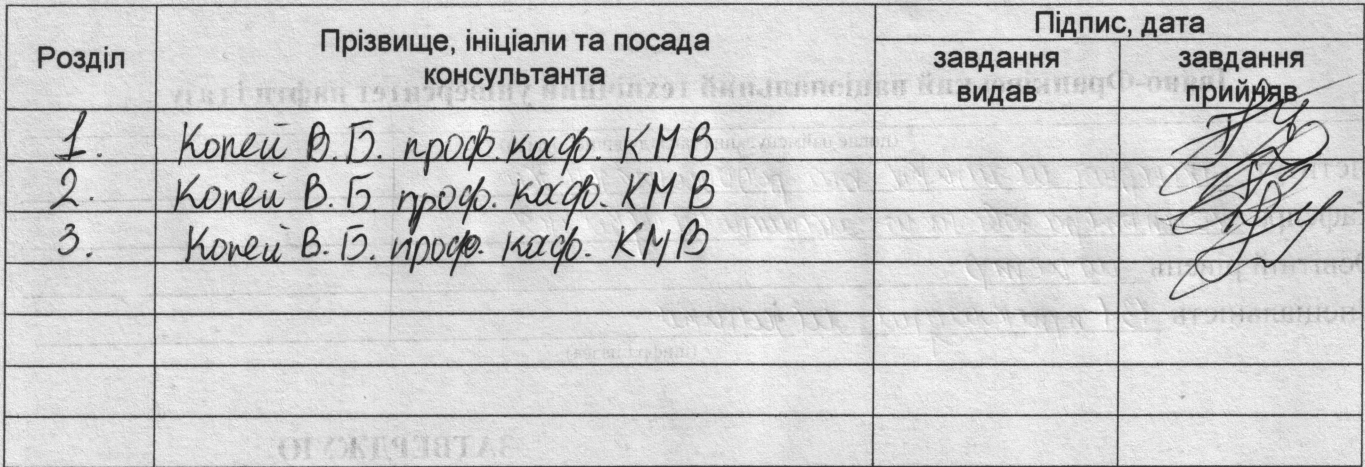 Розділ
Прізвище, ініціали та посада
консультанта
Підпис, дата
завдання
видав
завдання
прийняв
1. Копей В.Б. проф. каф. КМВ
2. Копей В.Б. проф. каф. КМВ
3. Копей В.Б. проф. каф. КМВ